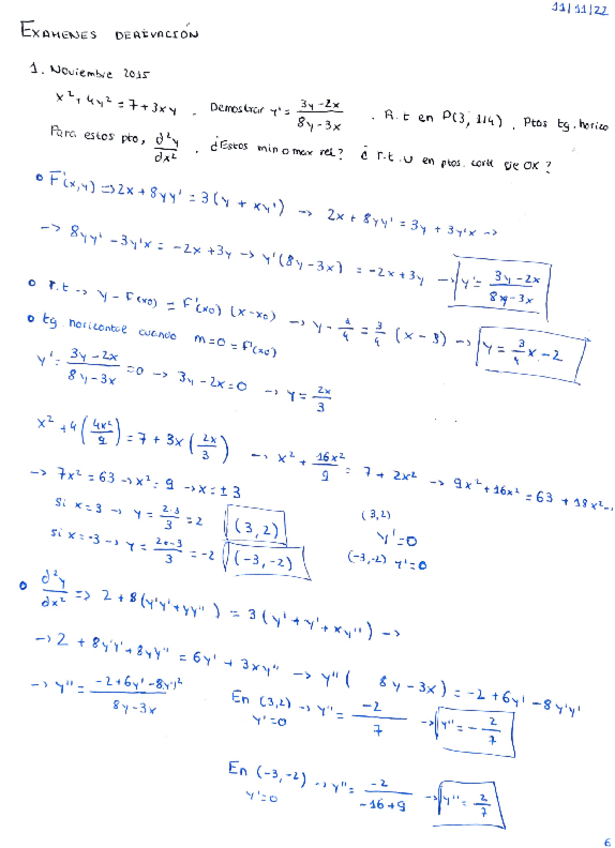 11/11/22
EXAMENES DERIVACIÓN
1. Noviembre 2015
x² + 4y² = 7 + 3xy . Demostrar y' = (3y-2x)/(8y-3x) . R.t en P(3, 1/4) . Ptos tg. horizo
Para estos pto, d²y/dx² . ¿Estos min o max rel? ¿ r.t. u en ptos. corte de OX ?
• F'(x,y) => 2x + 8yy' = 3(y + xy') -> 2x + 8yy' = 3y + 3y'x ->
-> 8yy' - 3y'x = -2x + 3y -> y'(8y-3x) = -2x + 3y -> y' = (3y-2x)/(8y-3x)
• r.t -> y - F(x0) = F'(x0) (x-x0) -> y - 1/4 = 3/4 (x-3) -> y = 3/4 x - 2
• tg. horizontal cuando m=0=F'(x0)
y' = (3y-2x)/(8y-3x) = 0 -> 3y-2x=0 -> y = 2x/3
x² + 4(4x²/9) = 7 + 3x(2x/3) -> x² + 16x²/9 = 7 + 2x² -> 9x² + 16x² = 63 + 18x² -
-> 7x² = 63 -> x² = 9 -> x = ± 3
Si x=3 -> y = 2·3/3 = 2 (3,2)
Si x=-3 -> y = 2·-3/3 = -2 (-3,-2)
(3,2)
y'=0
(-3,-2) y'=0
• d²y/dx² => 2 + 8(y'y' + yy'') = 3(y' + y' + xy'') ->
-> 2 + 8y'y' + 8yy'' = 6y' + 3xy'' -> y''( 8y-3x) = -2 + 6y' - 8y'y'
-> y'' = (-2+6y'-8y')²/(8y-3x)
En (3,2) -> y'' = -2/7 -> y'' = -2/7
y'=0
En (-3,-2) -> y'' = -2/(-16+9) -> y'' = 2/7
y'=0
6